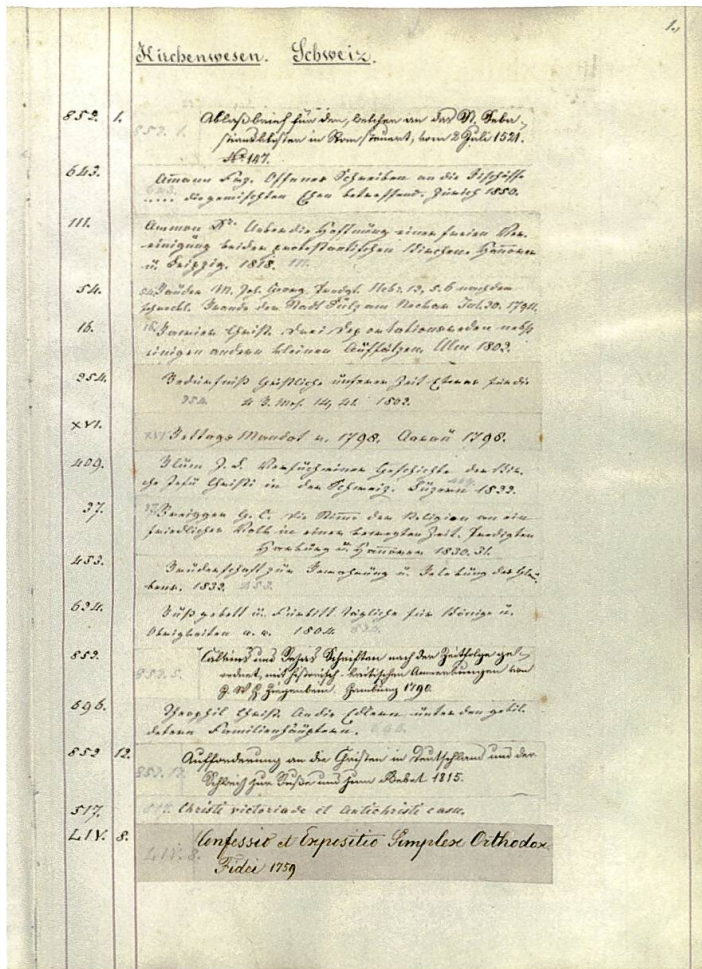 1.,
Kirchenwesen. Schweiz.
852. 1. Ablaßbrief für den, welcher an das St. Seba-
in Rom steuert, vom 2 Juli 1521.
N° 147.
643. Ammann Füg. Offener Schreiben an die Bischöffe
..... die gemischten Ehen betreffend. Zürich 1850.
III. Ammon Dr. Ueber die Hoffnung einer freien Ver-
einigung beider protestantischen Kirchen. Hannover
u. Leipzig. 1818. III.
54. M. Joh. Georg. Predigt. Hebr. 13, 5. 6 nach dem
schreckl. Brande der Stadt Sulz am Neckar Jul. 20. 1794.
16. Christ. Drei Deportationsreden nebst
einigen andern kleinen Aufsätzen. Ulm 1803.
254. Bedürfniß Geistliche unserer Zeit für die
254. 4 B. Mos. 14, 41. 1802.
XVI. XVI Bettags Mandat v. 1798. Aarau 1798.
409. Blum J. L. Versuch einer Geschichte der Kir-
che Jesu Christi in der Schweiz. Luzern 1833.
37. Breiger G. C. Die Stimme der Religion an ein
friedliches Volk in einer bewegten Zeit. Predigten
Harburg u. Hanover 1830. 31.
453. Bruderschaft zur Bewahrung u. Belebung des Glau-
bens. 1833. 453.
634. Bußgebett u. Fürbitt tägliche für Könige u.
Obrigkeiten u. s. 1804. 634.
852. Calvins und Bezas Schriften nach der Zeitfolge ge-
852. 5. ordnet, mit historisch-kritischen Anmerkungen von
J. W. H. Ziegenbein. Hamburg 1790.
696. Theophil Christ. An die Edlern unter den gebil-
detern Familienhäuptern. 696.
852 12. Aufforderung an die Christen in Deutschland und der
852. 12. Schweiz zur Buße und zum Gebet 1815.
517. 517. Christi victoria de et Antichristi casu.
LIV. 8. Confessio et Expositio Simplex Orthodox
LIV. 8. Fidei 1759